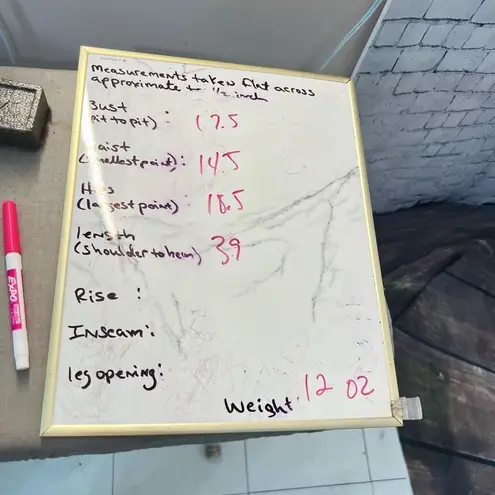 measurements taken flat across
approximate to 1/2 inch
Bust
(pit to pit) : 17.5
waist
(smallest point) : 14.5
Hips
(largest point) : 18.5
length
(shoulder to hem) 39
Rise :
Inseam :
leg opening :
Weight : 12 oz
EXPO